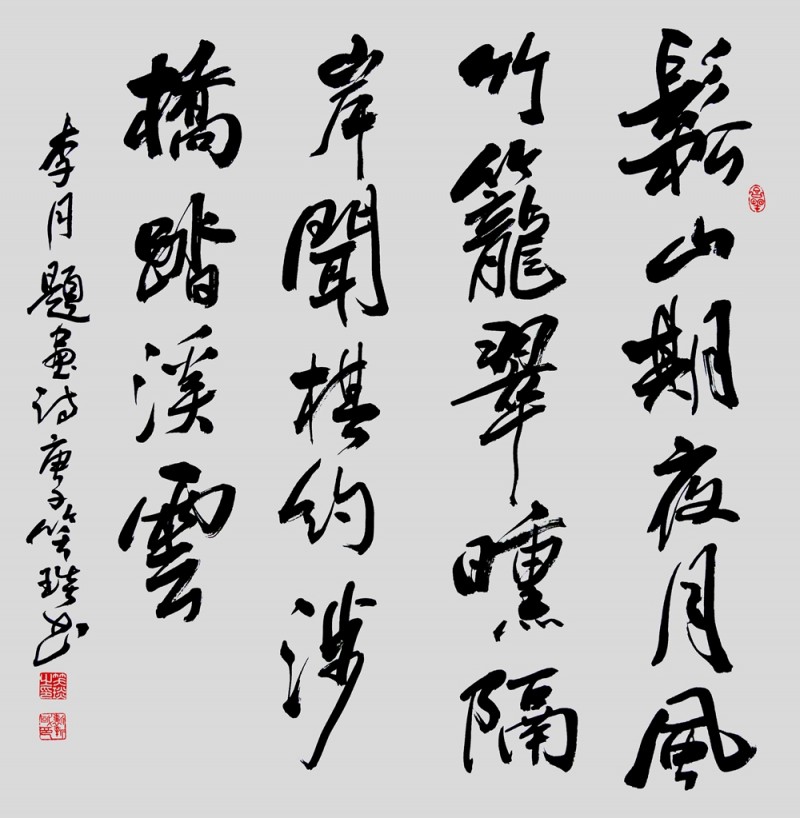 鬆山期夜月風
竹籠翠曛隔
岸聞棋約涉
橋踏溪雲
李月題畫诗庚子笑琰书